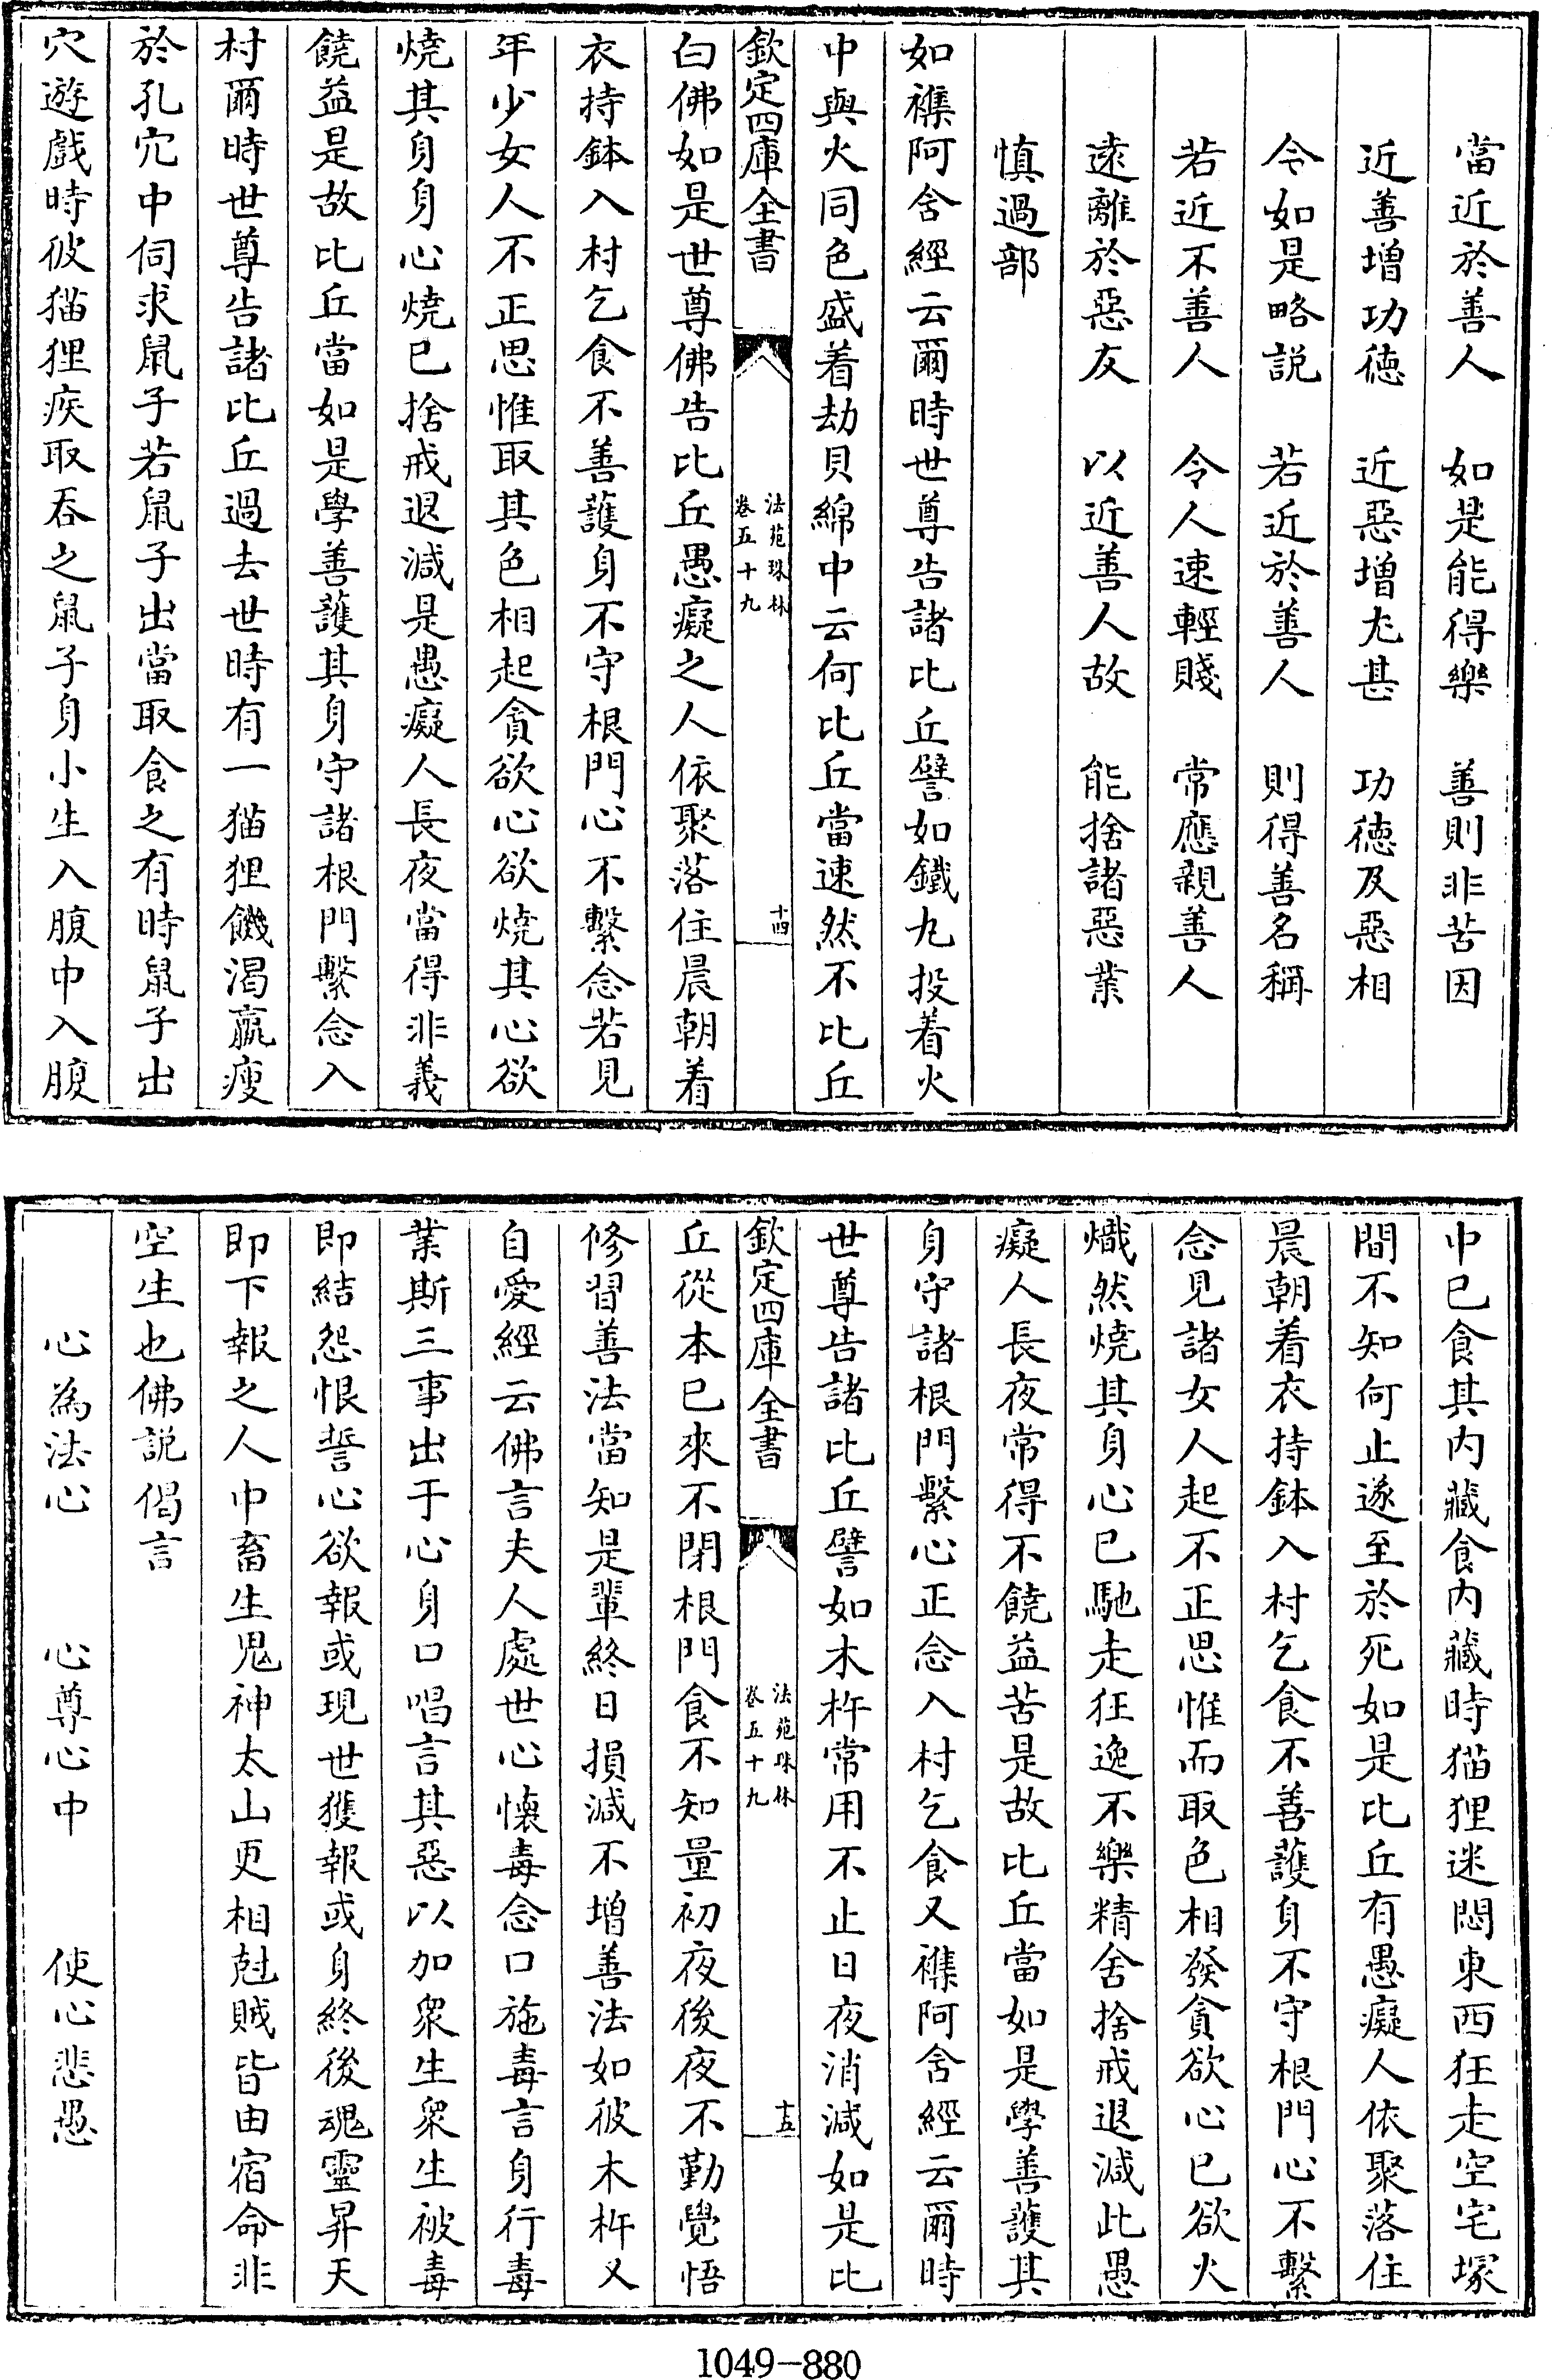 當近於善人　如是能得樂　善則非苦因
近善增功徳　近惡增尤甚　功徳及惡相
令如是略説　若近於善人　則得善名稱
若近不善人　令人速輕賤　常應親善人
遠離於惡友　以近善人故　能捨諸惡業
慎過部
如襍阿舍經云爾時世尊告諸比丘譬如鐵丸投着火
中與火同色盛着劫貝綿中云何比丘當速然不比丘
欽定四庫全書　法苑珠林卷五十九　十四
白佛如是世尊佛告比丘愚癡之人依聚落住晨朝着
衣持鉢入村乞食不善護身不守根門心不繫念若見
年少女人不正思惟取其色相起貪欲心欲燒其心欲
燒其身身心燒已捨戒退減是愚癡人長夜當得非義
饒益是故比丘當如是學善護其身守諸根門繫念入
村爾時世尊告諸比丘過去世時有一猫狸饑渴羸瘦
於孔穴中伺求鼠子若鼠子出當取食之有時鼠子出
穴遊戲時彼猫狸疾取吞之鼠子身小生入腹中入腹
中已食其内藏食内藏時猫狸迷悶東西狂走空宅塚
間不知何止遂至於死如是比丘有愚癡人依聚落住
晨朝着衣持鉢入村乞食不善護身不守根門心不繫
念見諸女人起不正思惟而取色相發貪欲心已欲火
熾然燒其身心已馳走狂逸不樂精舍捨戒退減此愚
癡人長夜常得不饒益苦是故比丘當如是學善護其
身守諸根門繫心正念入村乞食又襍阿舍經云爾時
世尊告諸比丘譬如木杵常用不止日夜消減如是比
欽定四庫全書　法苑珠林卷五十九　十五
丘從本已來不閉根門食不知量初夜後夜不勤覺悟
修習善法當知是輩終日損減不增善法如彼木杵又
自愛經云佛言夫人處世心懷毒念口施毒言身行毒
業斯三事出于心身口唱言其惡以加衆生衆生被毒
即結怨恨誓心欲報或現世獲報或身終後魂靈昇天
即下報之人中畜生鬼神太山更相尅賊皆由宿命非
空生也佛説偈言
心為法心　心尊心中　使心悲愚
1049-880